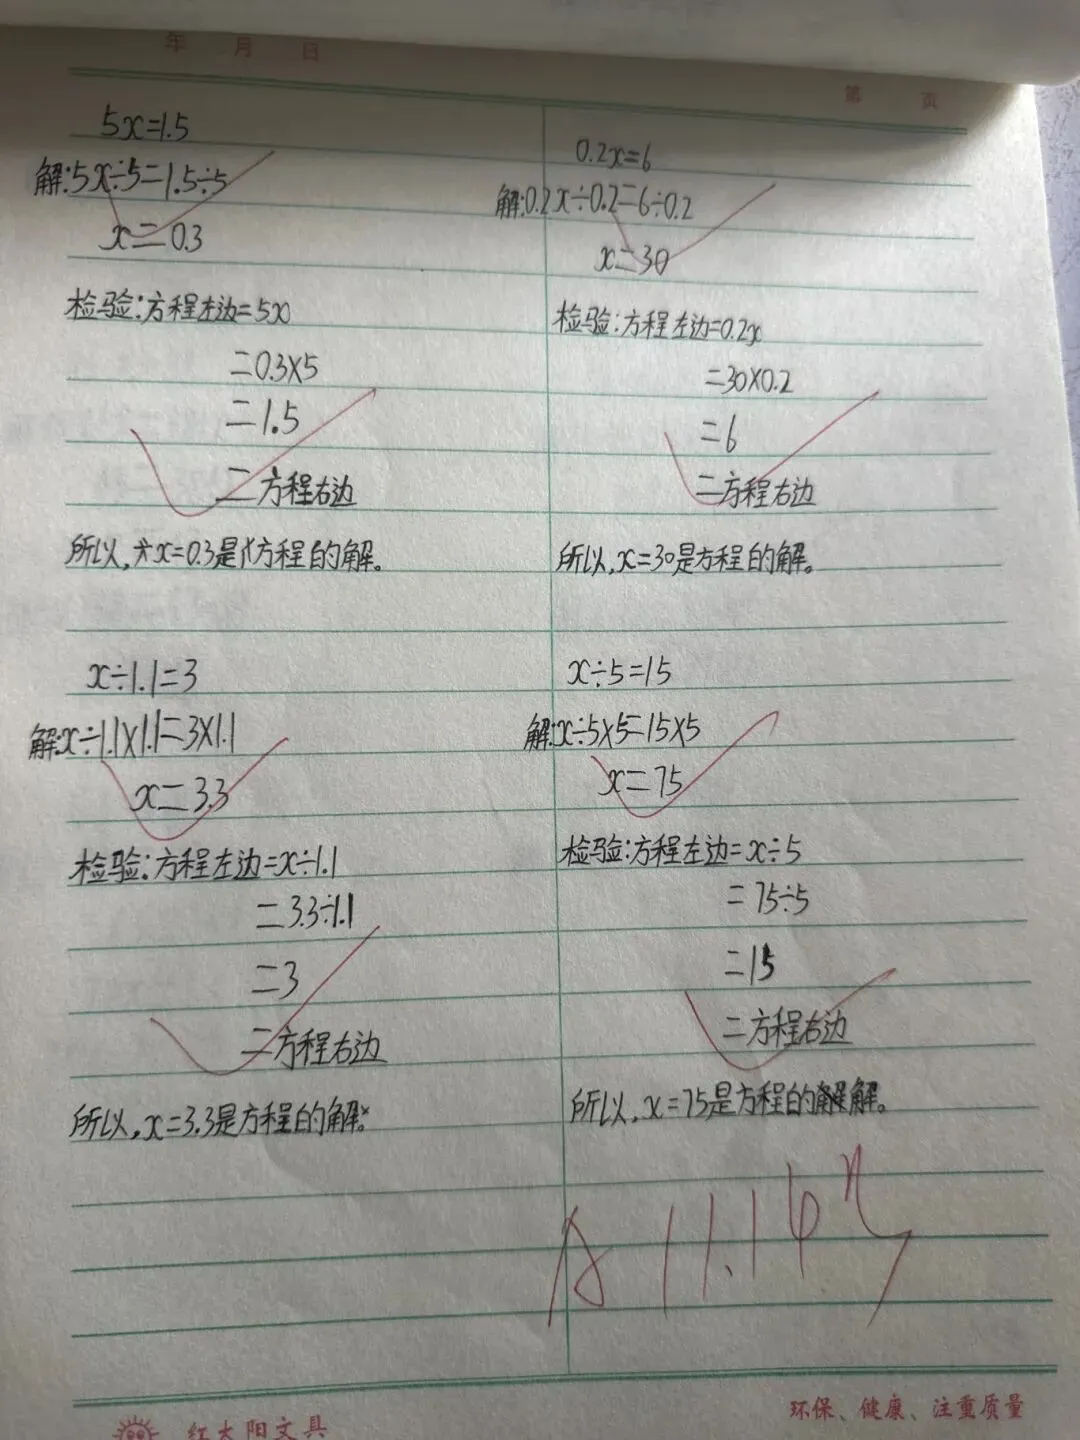 年 月 日
第 页
5x=1.5
解:5x÷5=1.5÷5
x=0.3
检验:方程左边=5x
=0.3×5
=1.5
=方程右边
所以,x=0.3是方程的解。
0.2x=6
解:0.2x÷0.2=6÷0.2
x=30
检验:方程左边=0.2x
=30×0.2
=6
=方程右边
所以,x=30是方程的解。
x÷1.1=3
解:x÷1.1×1.1=3×1.1
x=3.3
检验:方程左边=x÷1.1
=3.3÷1.1
=3
=方程右边
所以,x=3.3是方程的解。
x÷5=15
解:x÷5×5=15×5
x=75
检验:方程左边=x÷5
=75÷5
=15
=方程右边
所以,x=75是方程的解。
A 11.14
红太阳文具
环保、健康、注重质量